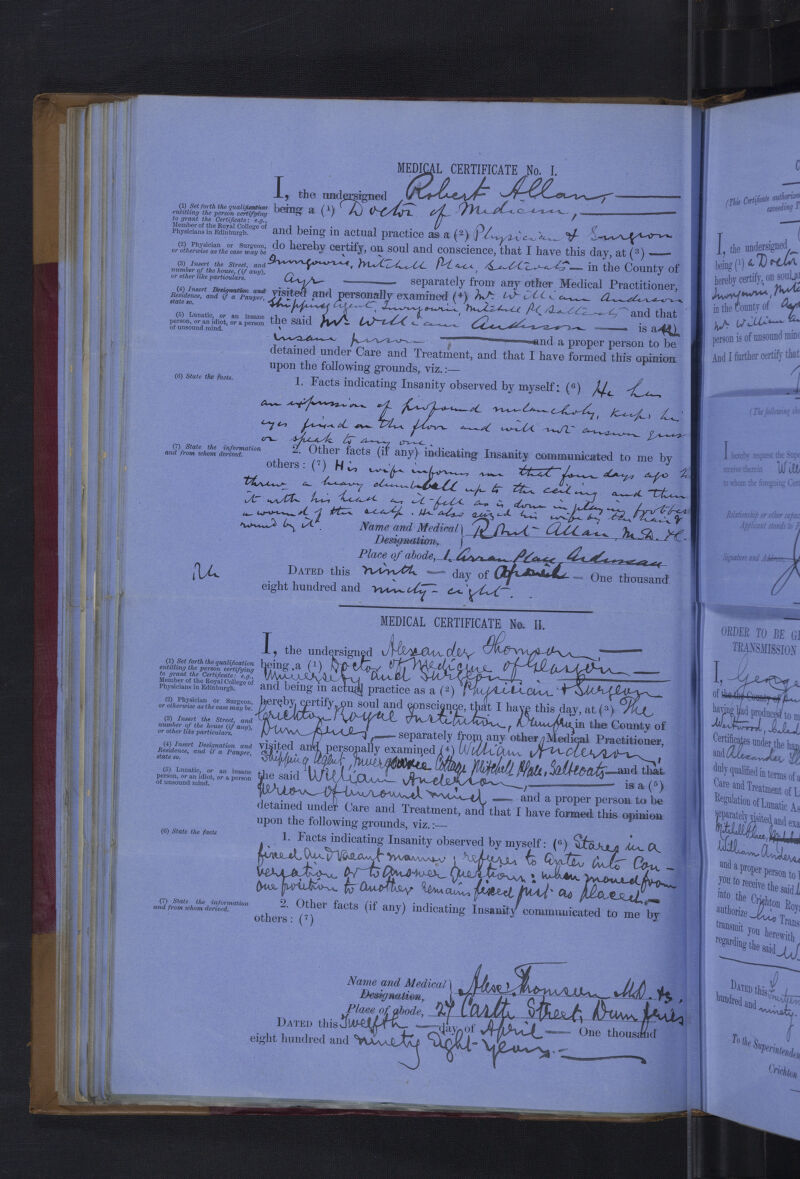 MEDICAL CERTIFICATE No. I.
I, the undersigned Robert Allan,
(1) Set forth the qualification
entitling the person certifying
to grant the Certificate; e.g.,
Member of the Royal College of
Physicians in Edinburgh.
being a (1) Doctor of Medicine,
and being in actual practice as a (2) Physician & Surgeon
(2) Physician or Surgeon,
or otherwise as the case may be
do hereby certify, on soul and conscience, that I have this day, at (3)
(3) Insert the Street, and
number of the house, (if any),
or other like particulars.
Invergowrie, Mitchell Place, Saltcoats in the County of
Ayr separately from any other Medical Practitioner,
(4) Insert Designation and
Residence, and if a Pauper,
state so.
visited and personally examined (4) Mr. William Anderson
Shipping Agent, Invergowrie, Mitchell Pl. Saltcoats and that
(5) Lunatic, or an insane
person, or an idiot, or a person
of unsound mind.
the said Mr William Anderson is a (5)
insane person and a proper person to be
detained under Care and Treatment, and that I have formed this opinion
upon the following grounds, viz.:—
(6) State the facts.
1. Facts indicating Insanity observed by myself: (6) He has
an expression of profound melancholy, keeps his
eyes fixed on the floor and will not answer
or speak to any one.
(7) State the information
and from whom derived.
2. Other facts (if any) indicating Insanity communicated to me by
others: (7) His wife informs me that four days ago he
threw a heavy dumbbell up to the ceiling and then
it with his head as it fell as is done in playing football
a wound of the scalp. He also seized his wife by the hair &
round by it.
Name and Medical
Designation, Robert Allan, M.B. &c.
Place of abode, 1 Arran Place Ardrossan
DATED this ninth day of April One thousand
eight hundred and ninety-eight.
MEDICAL CERTIFICATE No. ii.
I, the undersigned Alexander Thomson
(1) Set forth the qualification
entitling the person certifying
to grant the Certificate; e.g.,
Member of the Royal College of
Physicians in Edinburgh.
being a (1) Doctor of Medicine of Glasgow
University and Surgeon
and being in actual practice as a (2) Physician & Surgeon
(2) Physician or Surgeon,
or otherwise as the case may be.
hereby certify, on soul and conscience, that I have this day, at (3) The
(3) Insert the Street, and
number of the house, (if any),
or other like particulars.
Crichton Royal Institution, Dumfries in the County of
Dumfries, separately from any other Medical Practitioner,
(4) Insert Designation and
Residence, and if a Pauper,
state so.
visited and personally examined (4) William Anderson,
Shipping Agent, Cottage Mitchell Place, Saltcoats and that
(5) Lunatic, or an insane
person, or an idiot, or a person
of unsound mind.
the said William Anderson, is a (5)
person of unsound mind and a proper person to be
detained under Care and Treatment, and that I have formed this opinion
upon the following grounds, viz.:—
(6) State the facts
1. Facts indicating Insanity observed by myself: (6) Stares in a
fixed and vacant manner; refuses to enter into con-
versation or to answer questions; when moved from
one position to another remains fixed just as placed.
(7) State the information
and from whom derived.
2. Other facts (if any) indicating Insanity communicated to me by
others: (7)
Name and Medical
Designation, Alexr. Thomson M.D. &c.
Place of abode, 27 Castle Street, Dumfries
DATED this Twelfth day of April One thousand
eight hundred and ninety eight years.
(This Certificate
I, the undersigned
being (1) a Doctor
hereby certify, on soul
in the County of
Mr William
person is of unsound mind
And I further certify that
(The following
I hereby request the
receive therein
to whom the foregoing
Relationship or other
Applicant stands to
Signature and Address,
ORDER TO BE
TRANSMISSION
I, George
of the County of
having had produced to
Certificates under the
and Alexander
duly qualified in terms of
Care and Treatment of
Regulation of Lunatic
separately visited and
Mitchell Place,
William Anderson
and a proper person to
you to receive the said
into the Crichton
authorize his
transmit you herewith
regarding the said
DATED this
hundred and ninety
To the Superintendent
Crichton